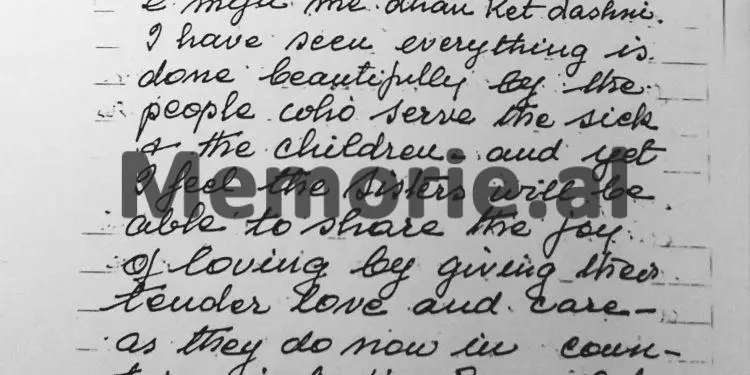 e mija me dhan ket dashni.
I have seen everything is
done beautifully by the
people who serve the sick
& the children. and yet
I feel the sisters will be
able to share the joy
of loving by giving their
tender love and care -
as they do now in coun-
Memorie.al